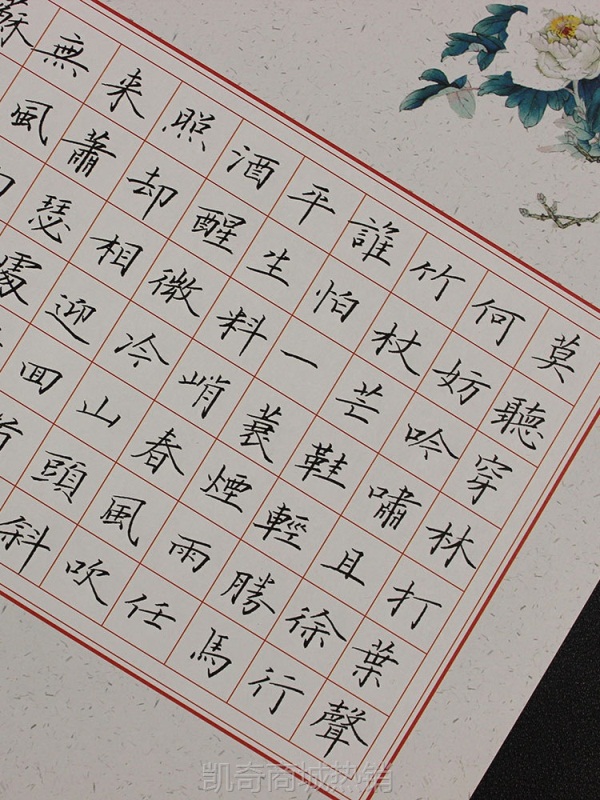 莫聽穿林打葉聲
何妨吟嘯且徐行
竹杖芒鞋輕勝馬
誰怕一蓑煙雨任
平生料峭春風吹
酒醒微冷山頭斜
照却相迎回
来蕭瑟處
無風
蘇
凯奇商城热销